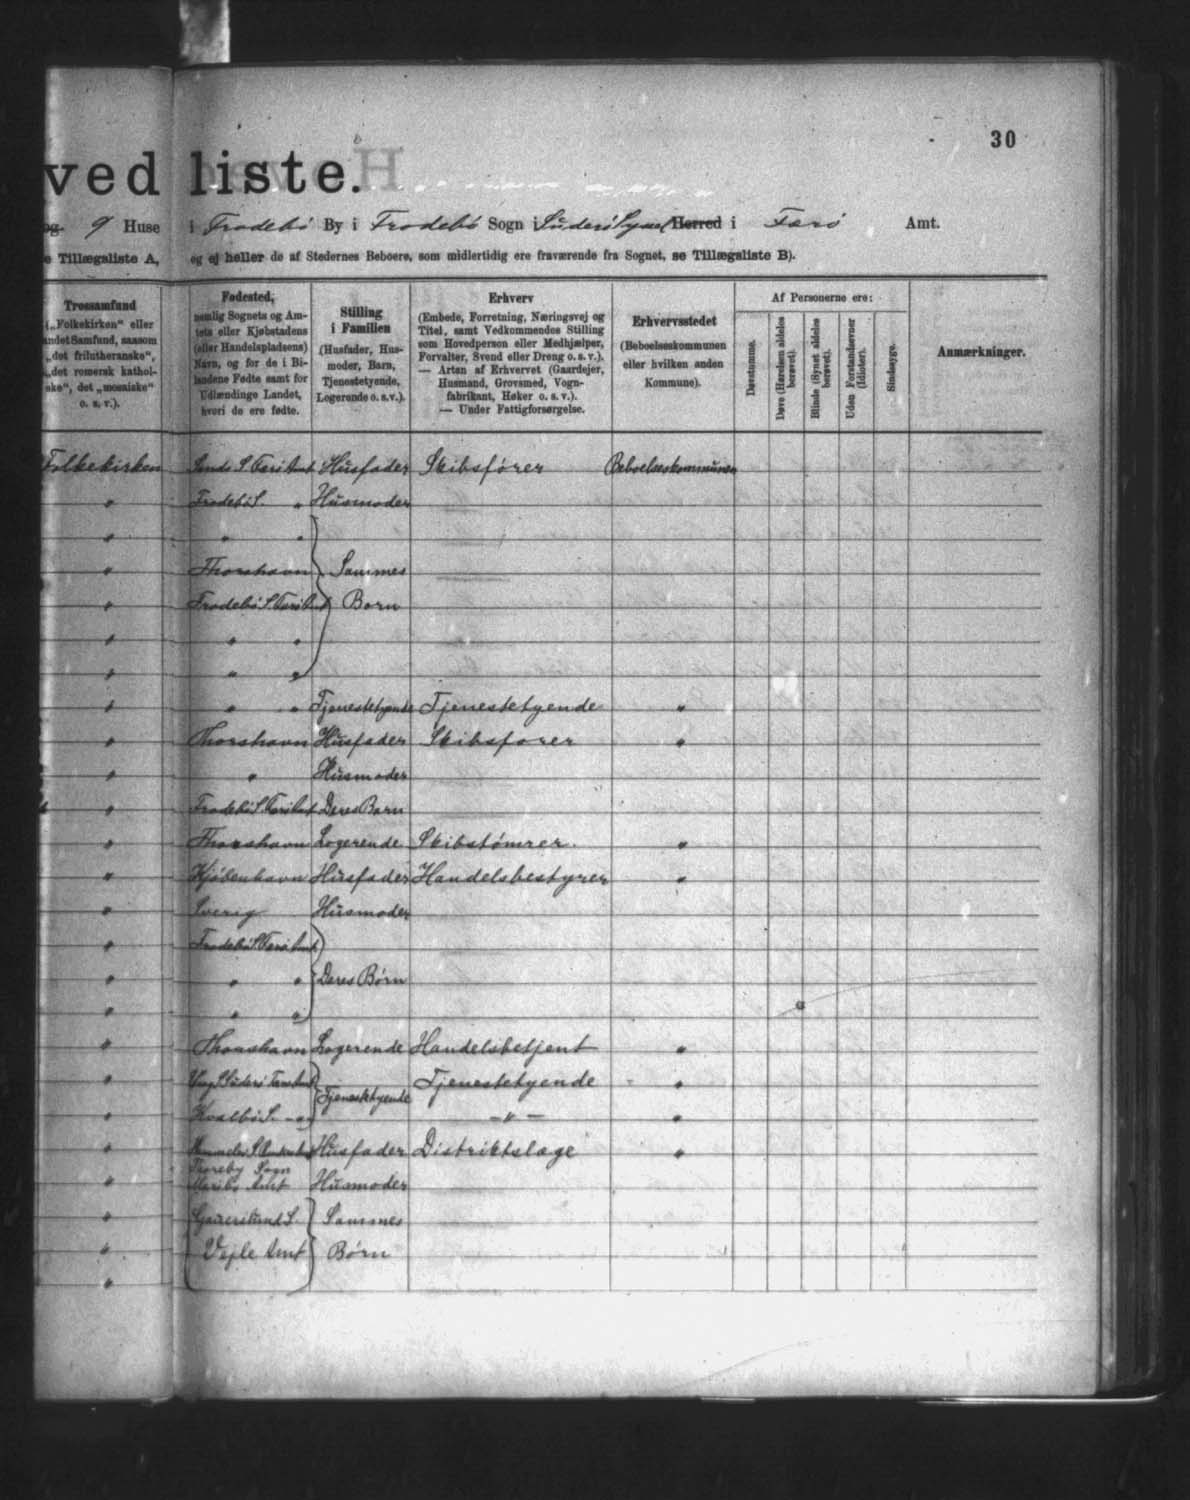 30
ved liste.
og 9 Huse i Frodebö By i Frodebö Sogn i Suderö Syssel Herred i Færö Amt.
e Tillægsliste A, og ej heller de af Stedernes Beboere, som midlertidig ere fraværende fra Sognet, se Tillægsliste B).
Trossamfund
(„Folkekirken“ eller
andet Samfund, saasom
„det frilutheranske“,
„det romersk kathol-
ske“, det „mosaiske“
o. s. v.).
Fødested,
nemlig Sognets og Am-
tets eller Kjøbstadens
(eller Handelspladsens)
Navn, og for de i Bi-
landene Fødte samt for
Udlændinge Landet,
hvori de ere fødte.
Stilling
i Familien
(Husfader, Hus-
moder, Barn,
Tjenestetyende,
Logerende o. s. v.).
Erhverv
(Embede, Forretning, Næringsvej og
Titel, samt Vedkommendes Stilling
som Hovedperson eller Medhjælper,
Forvalter, Svend eller Dreng o. s. v.).
— Arten af Erhvervet (Gaardejer,
Husmand, Grovsmed, Vogn-
fabrikant, Høker o. s. v.).
— Under Fattigforsørgelse.
Erhvervsstedet
(Beboelseskommunen
eller hvilken anden
Kommune).
Af Personerne ere:
Døvstumme.
Døve (Hørelsen aldeles
berøvet).
Blinde (Synet aldeles
berøvet).
Uden Forstandsevner
(Idioter).
Sindssyge.
Anmærkninger.
Folkekirken Sands S. Færö Amt Husfader Skibsfører Beboelseskommunen
" Frodebö S. " Husmoder
" " "
" Thorshavn Sammes
" Frodebö S. Færö Amt Børn
" " "
" " "
" " " Tjenestetyende Tjenestetyende "
" Thorshavn Husfader Skibsfører "
" " Husmoder
" Frodebö S. Færö Amt Deres Barn
" Thorshavn Logerende Skibstömrer. "
" Kjöbenhavn Husfader Handelsbestyrer "
" Sverig Husmoder
" Frodebö S. Færö Amt
" " " Deres Børn
" " "
" Thorshavn Logerende Handelsbetjent "
" Vaag S. Suderö Færö Amt Tjenestetyende Tjenestetyende "
" Kvalbö S. - " - " - "
" Husfader Distriktslæge "
" Thoreby Sogn
Maribo Amt Husmoder
" S. Sammes
" Vejle Amt Børn
"